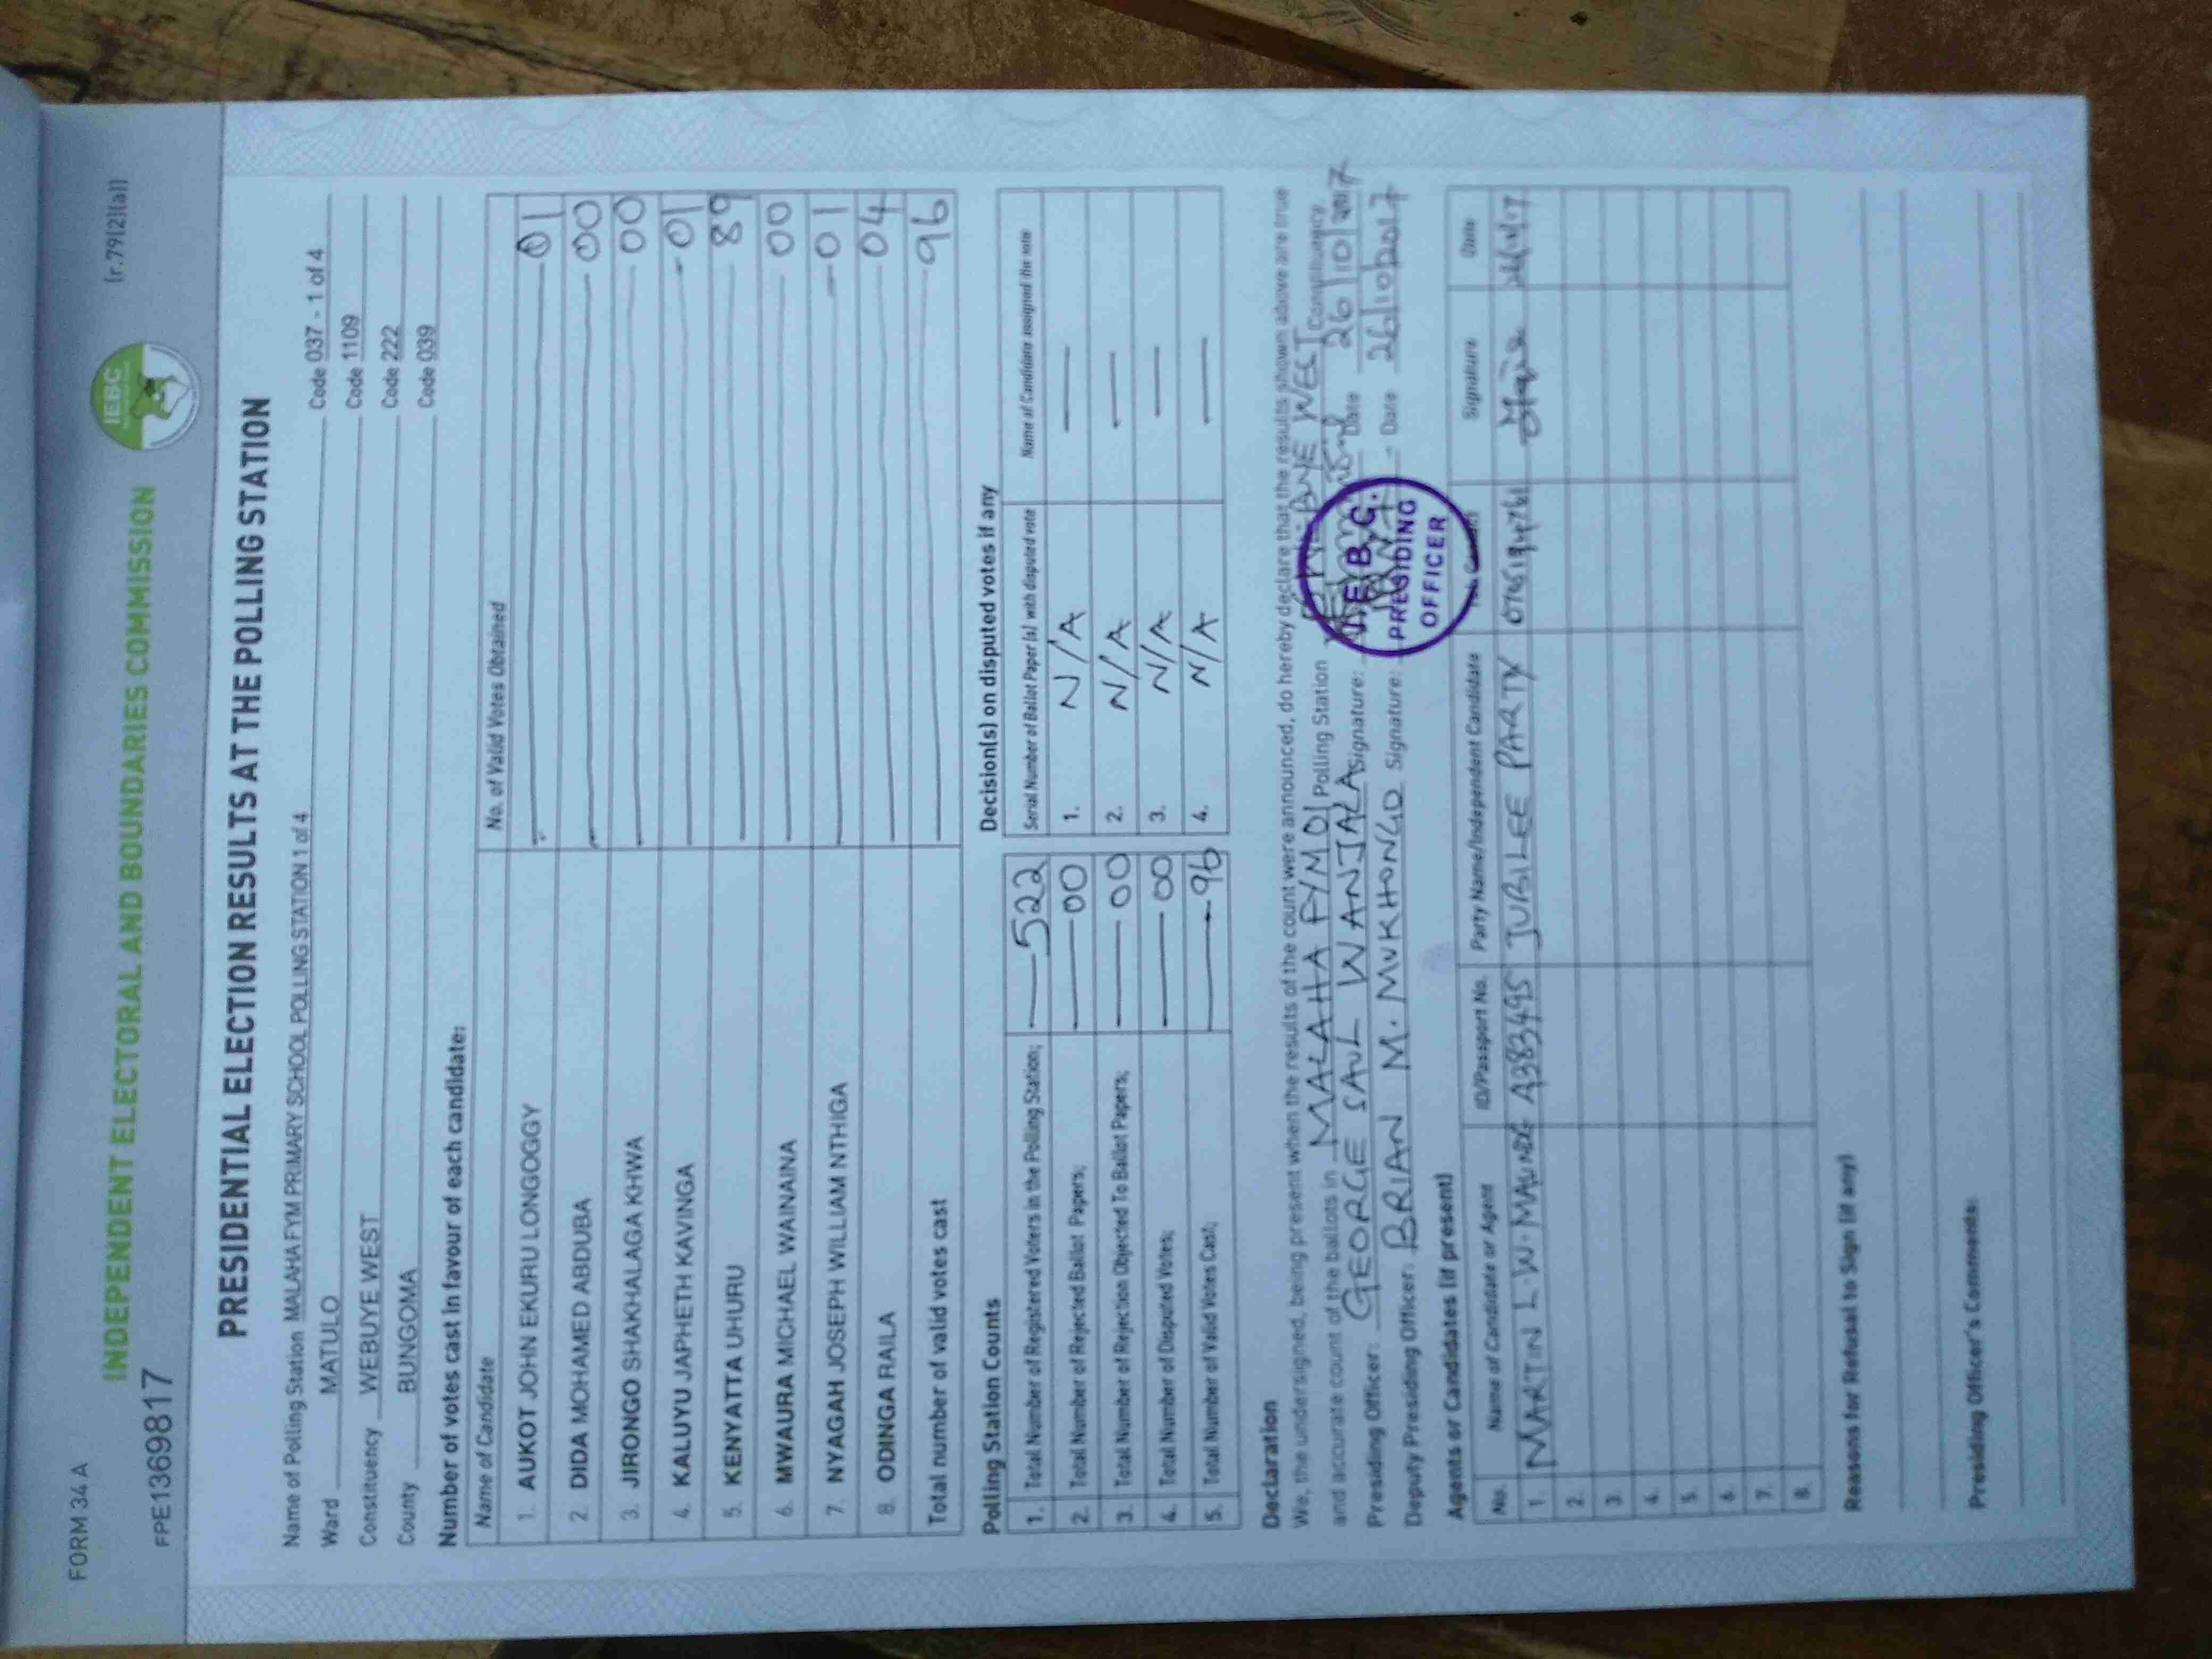 FORM 34 A
(r.79(2)(a))
IEBC
INDEPENDENT ELECTORAL AND BOUNDARIES COMMISSION
FPE1369817
PRESIDENTIAL ELECTION RESULTS AT THE POLLING STATION
Name of Polling Station MALAHA FYM PRIMARY SCHOOL POLLING STATION 1 of 4 Code 037 - 1 of 4
Ward MATULO Code 1109
Constituency WEBUYE WEST Code 222
County BUNGOMA Code 039
Number of votes cast in favour of each candidate:
Name of Candidate No. of Valid Votes Obtained
1. AUKOT JOHN EKURU LONGOGGY 01
2. DIDA MOHAMED ABDUBA 00
3. JIRONGO SHAKHALAGA KHWA 00
4. KALUYU JAPHETH KAVINGA 01
5. KENYATTA UHURU 89
6. MWAURA MICHAEL WAINAINA 00
7. NYAGAH JOSEPH WILLIAM NTHIGA 01
8. ODINGA RAILA 04
Total number of valid votes cast 96
Polling Station Counts
1. Total Number of Registered Voters in the Polling Station; 522
2. Total Number of Rejected Ballot Papers; 00
3. Total Number of Rejection Objected To Ballot Papers; 00
4. Total Number of Disputed Votes; 00
5. Total Number of Valid Votes Cast; 96
Decision(s) on disputed votes if any
Serial Number of Ballot Paper (s) with disputed vote Name of Candidate assigned the vote
1. N/A —
2. N/A —
3. N/A —
4. N/A —
Declaration
We, the undersigned, being present when the results of the count were announced, do hereby declare that the results shown above are true
and accurate count of the ballots in MALAHA FYM 01 Polling Station WEST Constituency
Presiding Officer: GEORGE SAUL WANJALA Signature: Date 26/10/2017
Deputy Presiding Officer: BRIAN M. MUKHONGO Signature: Date 26/10/2017
I.E.B.C.
PRESIDING
OFFICER
Agents or Candidates (if present)
No. Name of Candidate or Agent ID/Passport No. Party Name/Independent Candidate Signature Date
1. MARTIN L. W. JUBILEE PARTY
2.
3.
4.
5.
6.
7.
8.
Reasons for Refusal to Sign (if any)
Presiding Officer's Comments: